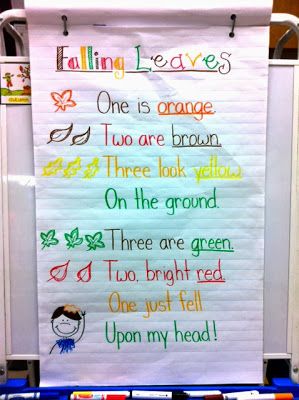 Falling Leaves
One is orange.
Two are brown.
Three look yellow
On the ground.
Three are green.
Two, bright red.
One just fell
Upon my head!